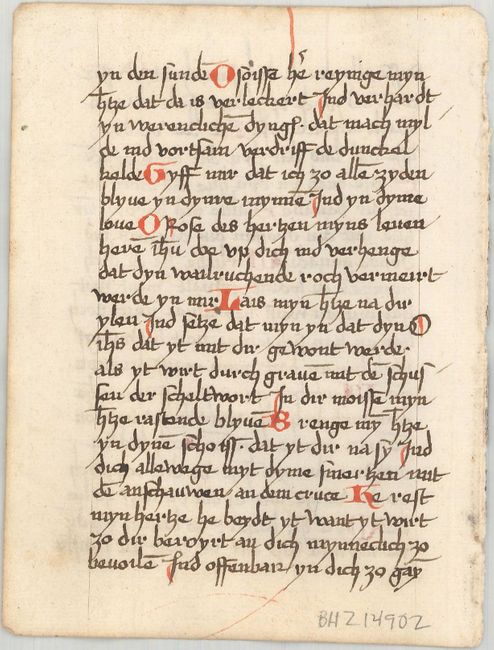 yn den sundē O soisse hē reynige myn
h̄tze dat da is verleckert Ind verhardt
yn werenclichē dyngē. dat mach myl
de ind vortsam verdriff de dunckel
helde Gyff mir dat ich zo allē zyden
blyue yn dynre mynnē Ind yn dyme
loue O Rose des hertzen myns leuen
herē ih̄u doe vp dich ind verhenge
dat dyn wailruchende roch vermeirt
werde yn mir Lais myn h̄tze na dir
ylen Ind setze dat myn yn dat dyn O
ih̄s dat yt mit dir gewont werde
als yt wirt durch grauē mit dē schus
sen der scheltwort In dir moisse myn
h̄tze rastende blyuē Brenge my h̄tze
yn dynē schoiss. dat yt dir na sy Ind
dich allewege myt dyme smertzen mit
dē anschauwen an dem cruce He rest
myn hertze he beydt yt want yt wirt
zo dir beroyrt an dich mynneclich zo
beuoilē Ind offenbair yn dich zo gay
BHZ14902